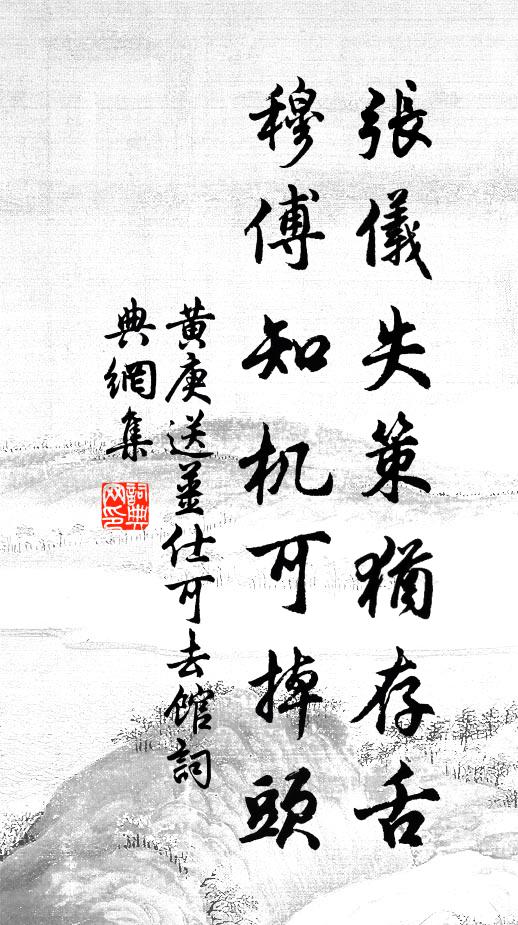 張儀失策猶存舌
穆傅知机可掉頭
黄庚送薑仕可去館詞
典網集
詞典
网印